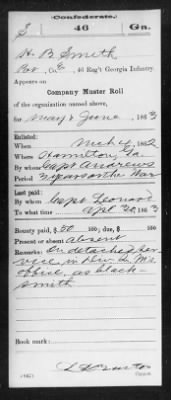 Confederate.
S 46 Ga.
H B Smith
Pvt, Co. E, 46 Reg't Georgia Infantry.
Appears on
Company Muster Roll
of the organization named above,
for May & June, 1863
Enlisted:
When Mch 4, 1862
Where Hamilton, Ga
By whom Capt Andrews
Period 3 years or the War
Last paid:
By whom Capt Leonard
To what time Apl 30, 1863
Bounty paid $50 100; due $ 100
Present or absent Absent
Remarks: On detached ser
vice, in Div Q. M's
Office, as black-
smith
Book mark: